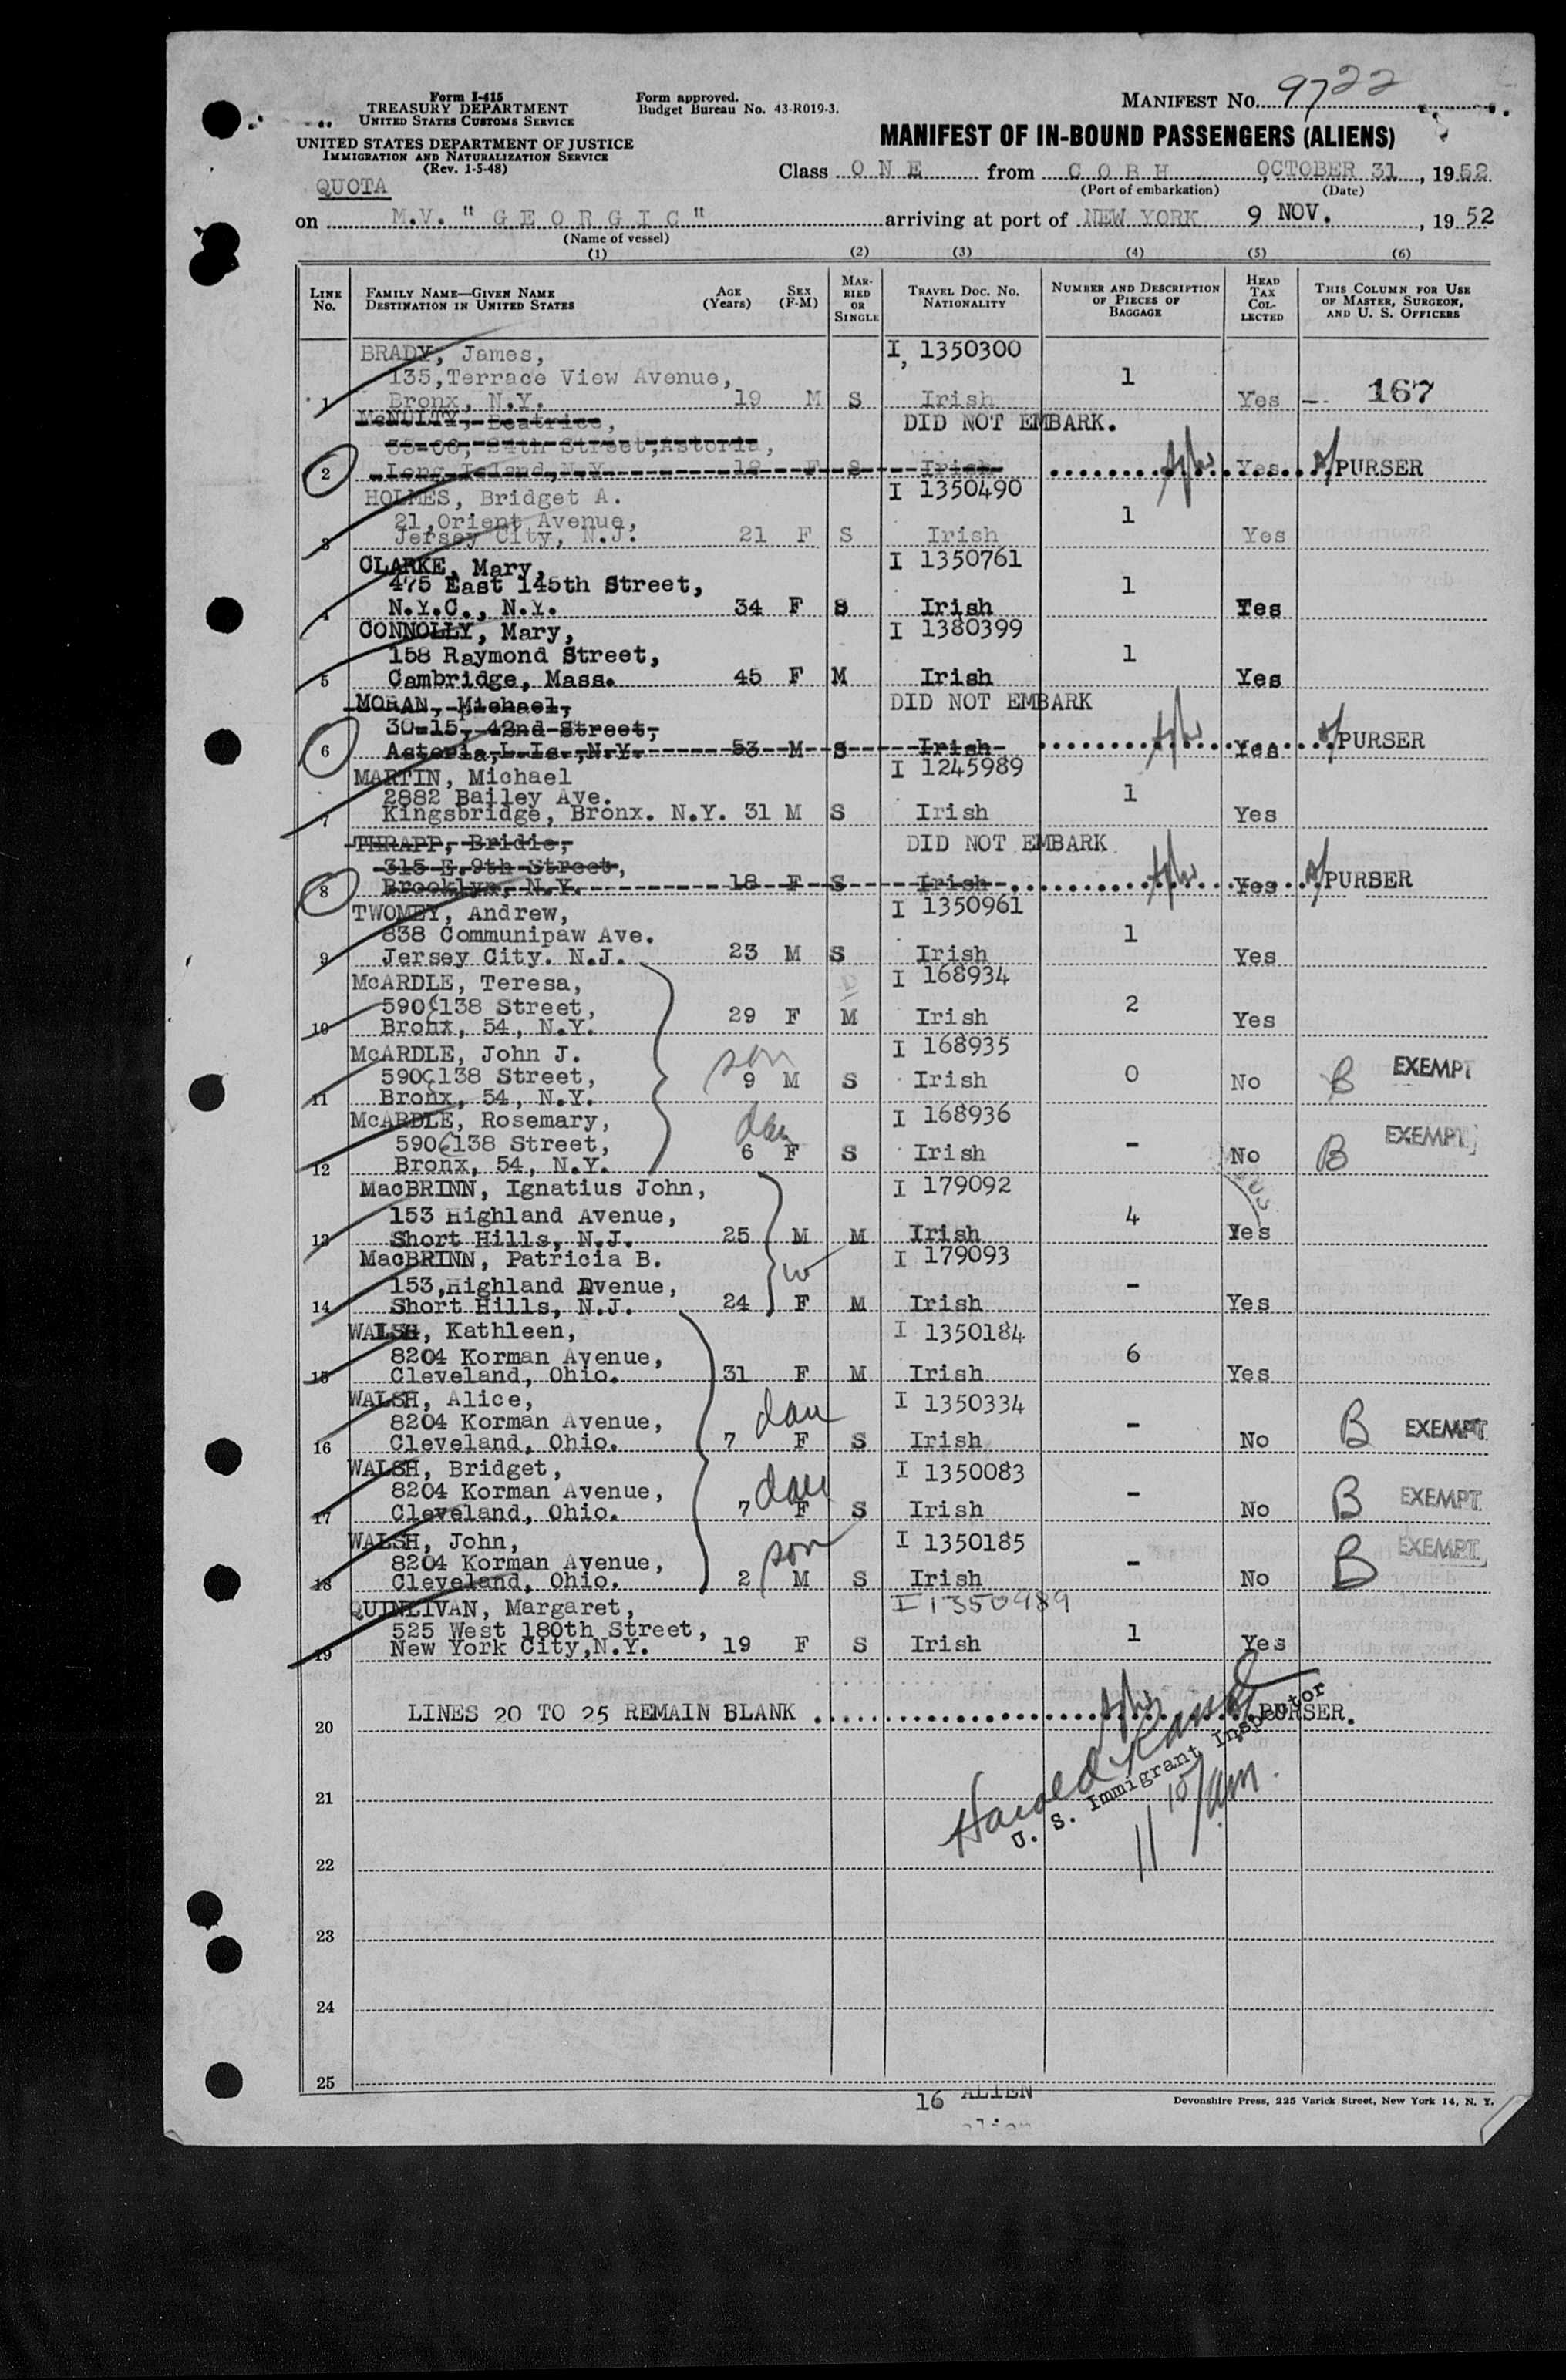 Form I-415
TREASURY DEPARTMENT
UNITED STATES CUSTOMS SERVICE
UNITED STATES DEPARTMENT OF JUSTICE
IMMIGRATION AND NATURALIZATION SERVICE
(Rev. 1-5-48)
QUOTA
Form approved.
Budget Bureau No. 43-R019-3.
MANIFEST NO. 9722
MANIFEST OF IN-BOUND PASSENGERS (ALIENS)
Class O N E from C O B H, OCTOBER 31, 1952
(Port of embarkation) (Date)
on M.V. "G E O R G I C" arriving at port of NEW YORK 9 NOV., 1952
(Name of vessel)
(1) (2) (3) (4) (5) (6)
LINE NO. FAMILY NAME—GIVEN NAME DESTINATION IN UNITED STATES AGE (YEARS) SEX (F-M) MARRIED OR SINGLE TRAVEL DOC. NO. NATIONALITY NUMBER AND DESCRIPTION OF PIECES OF BAGGAGE HEAD TAX COLLECTED THIS COLUMN FOR USE OF MASTER, SURGEON, AND U. S. OFFICERS
BRADY, James, I, 1350300
135,Terrace View Avenue, 1
1 Bronx, N.Y. 19 M S Irish Yes - 167
McNULTY, Beatrice, DID NOT EMBARK.
24th Street,Astoria,
2 Long Island,N.Y. F S Irish Yes PURSER
HOLMES, Bridget A. I 1350490
21,Orient Avenue, 1
3 Jersey City, N.J. 21 F S Irish Yes
CLARKE, Mary, I 1350761
475 East 145th Street, 1
4 N.Y.C., N.Y. 34 F S Irish Yes
CONNOLLY, Mary, I 1380399
158 Raymond Street, 1
5 Cambridge, Mass. 45 F M Irish Yes
MORAN, Michael, DID NOT EMBARK
30-15, 42nd Street,
6 Astoria,L.Is.,N.Y. 53 M S Irish Yes PURSER
MARTIN, Michael I 1245989
2882 Bailey Ave. 1
7 Kingsbridge, Bronx. N.Y. 31 M S Irish Yes
THRAPP, Bridie, DID NOT EMBARK
315 E.9th Street,
8 Brooklyn, N.Y. 18 F S Irish Yes PURSER
TWOMEY, Andrew, I 1350961
838 Communipaw Ave. 1
9 Jersey City. N.J. 23 M S Irish Yes
McARDLE, Teresa, I 168934
590 138 Street, 2
10 Bronx, 54, N.Y. 29 F M Irish Yes
McARDLE, John J. son I 168935
590 138 Street, 9 M S Irish 0 No B EXEMPT
11 Bronx, 54, N.Y.
McARDLE, Rosemary, dau I 168936
590 138 Street, 6 F S Irish - No B EXEMPT
12 Bronx, 54, N.Y.
MacBRINN, Ignatius John, I 179092
153 Highland Avenue, 4
13 Short Hills, N.J. 25 M M Irish Yes
MacBRINN, Patricia B. I 179093
153,Highland Avenue, w -
14 Short Hills, N.J. 24 F M Irish Yes
WALSH, Kathleen, I 1350184
8204 Korman Avenue, 6
15 Cleveland, Ohio. 31 F M Irish Yes
WALSH, Alice, I 1350334
8204 Korman Avenue, dau - B EXEMPT
16 Cleveland, Ohio. 7 F S Irish No
WALSH, Bridget, I 1350083
8204 Korman Avenue, dau - B EXEMPT
17 Cleveland, Ohio. 7 F S Irish No
WALSH, John, I 1350185
8204 Korman Avenue, son - B EXEMPT
18 Cleveland, Ohio. 2 M S Irish No
QUINLIVAN, Margaret, I 1350989
525 West 180th Street, 1
19 New York City,N.Y. 19 F S Irish Yes
LINES 20 TO 25 REMAIN BLANK PURSER.
20
U. S. Immigrant Inspector
Harold
11 10/am.
21
22
23
24
25
16 ALIEN
Devonshire Press, 225 Varick Street, New York 14, N. Y.